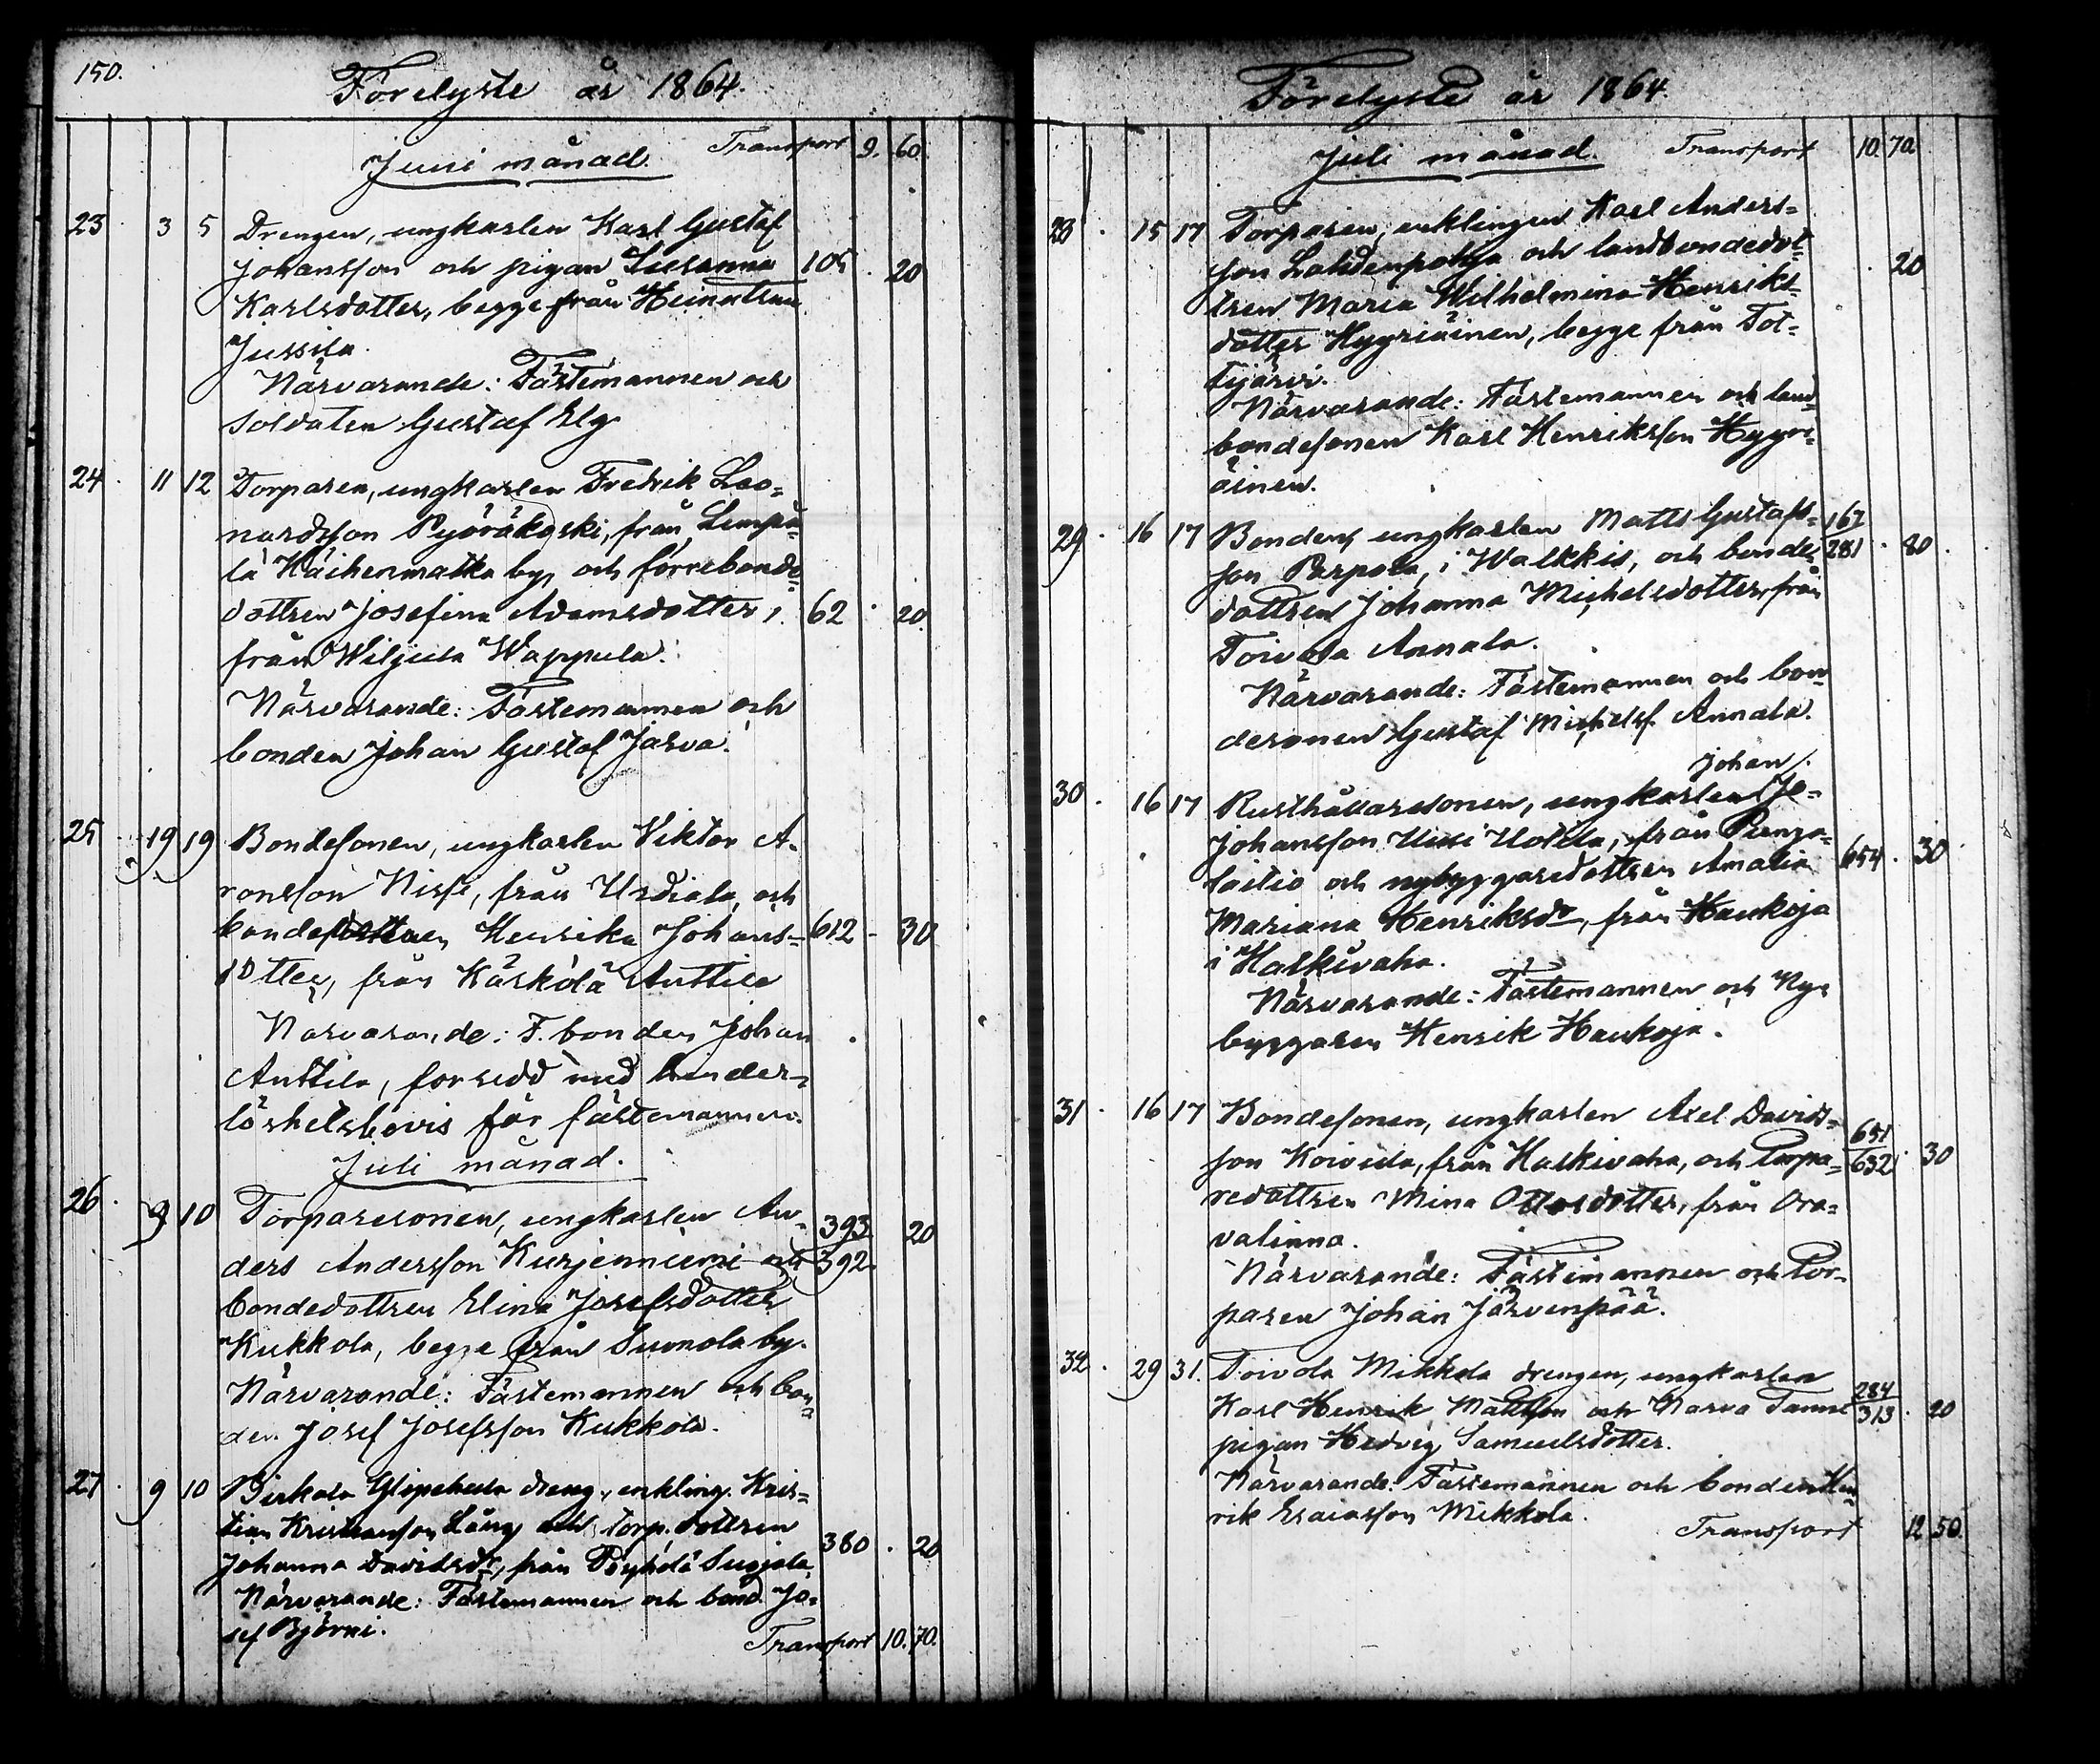 150.
Förelyste år 1864.
Juni månad. Transport 9. 60.
23 3 5 Drengen, ungkarlen Karl Gustaf
Johansson och pigan Susanna 105 . 20
Karlsdotter, begge från Heinatsuu
Jussila.
Närvarande: Fästemannen och
soldaten Gustaf Elg
24. 11 12 Torparen, ungkarlen Fredrik Leo-
nardsson Pyöräkoski, från Lempä-
lä Häihenmatka by, och förrebonde-
dottren Josefina Adamsdotter, 62 . 20.
från Wiljula Wappula.
Närvarande: Fästemannen och
bonden Johan Gustaf Järva.
25 19 19 Bondesonen, ungkarlen Viktor A-
ronsson Nissi, från Urdiala, och
bondedottren Henrika Johans- 612 - 30
dotter, från Kärkölä Anttila
Närvarande: F. bonden Johan
Anttila, försedd med hinder-
löshetsbevis för fästemannen.
Juli månad.
26. 9 10 Torparesonen, ungkarlen An- 393 20
ders Andersson Kurjenniemi och 392
bondedottren Elina Josefsdotter
Kukkola, begge från Suonola by.
Närvarande: Fästemannen och bon-
den Josef Josefsson Kukkola.
27. 9 10 Birkala dreng, enkling. Kris-
tian Kristiansson Lång och torp. dottren
Johanna Davidsdr, från Pöyhölä 380 . 20
Närvarande: Fästemannen och bond. Jo-
sef Björni.
Transport 10. 70.
Förelyste år 1864.
Juli månad. Transport 10. 70.
28 . 15 17 Torparen, enklingen Karl Anders-
son Lahdenpohja och landbondedot- . 20
tren Maria Wilhelmina Henriks-
dotter Hyyriäinen, begge från Tot-
tijärvi.
Närvarande: Fästemannen och land-
bondesonen Karl Henriksson Hyyri-
äinen.
29. 16 17 Bonden, ungkarlen Matts Gustafs- 167
son Parpola, i Walkkis, och bonde- 281 . 80.
dottren Johanna Michelsdotter, från
Toivola Annala.
Närvarande: Fästemannen och bon-
desonen Gustaf Michelsf. Annala.
Johan/.
30. 16 17 Rusthållaresonen, ungkarlen Jo-
Johansson Uusi Uotila, från Punga-
laitio och nybyggaredottren Amalia 654 . 30
Mariana Henriksdr, från Haukoja
i Halkivaha.
Närvarande: Fästemannen och Ny-
byggaren Henrik Haukoja.
31. 16 17 Bondesonen, ungkarlen Axel Davids- 651
son Koivula, från Halkivaha, och Torpa- 632 . 30
redottren Mina Ottosdotter, från Ora-
valinna.
Närvarande: Fästemannen och Tor-
paren Johan Järvenpää.
32. 29 31. Toivola Mikkola drengen, ungkarlen
Karl Henrik Mattsson och Narva 284
313 . 20
pigan Hedvig Samuelsdotter.
Närvarande: Fästemannen och bonden Hen-
rik Esaiasson Mikkola.
Transport 12 50.